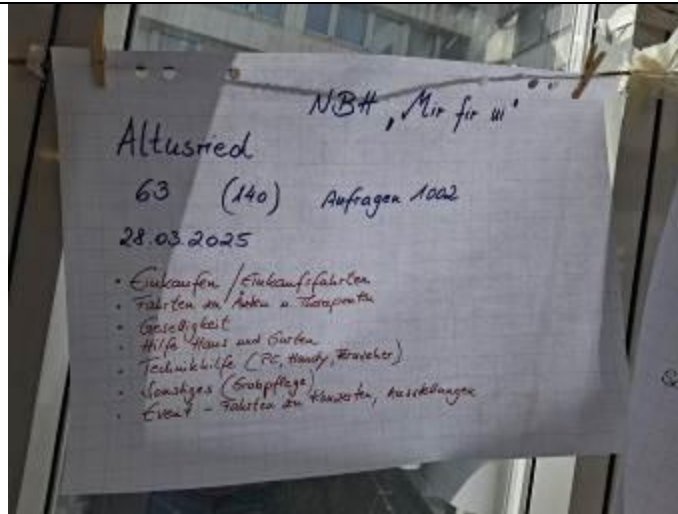 NBH „Mir fir ui“
Altusried
63 (140) Anfragen 1002
28.03.2025
• Einkaufen / Einkaufsfahrten
• Fahrten zu Ärzten u. Therapeuten
• Geselligkeit
• Hilfe Haus und Garten
• Technikhilfe (PC, Handy, Fernseher)
• Sonstiges (Grabpflege)
• Event - Fahrten zu Konzerten, Ausstellungen